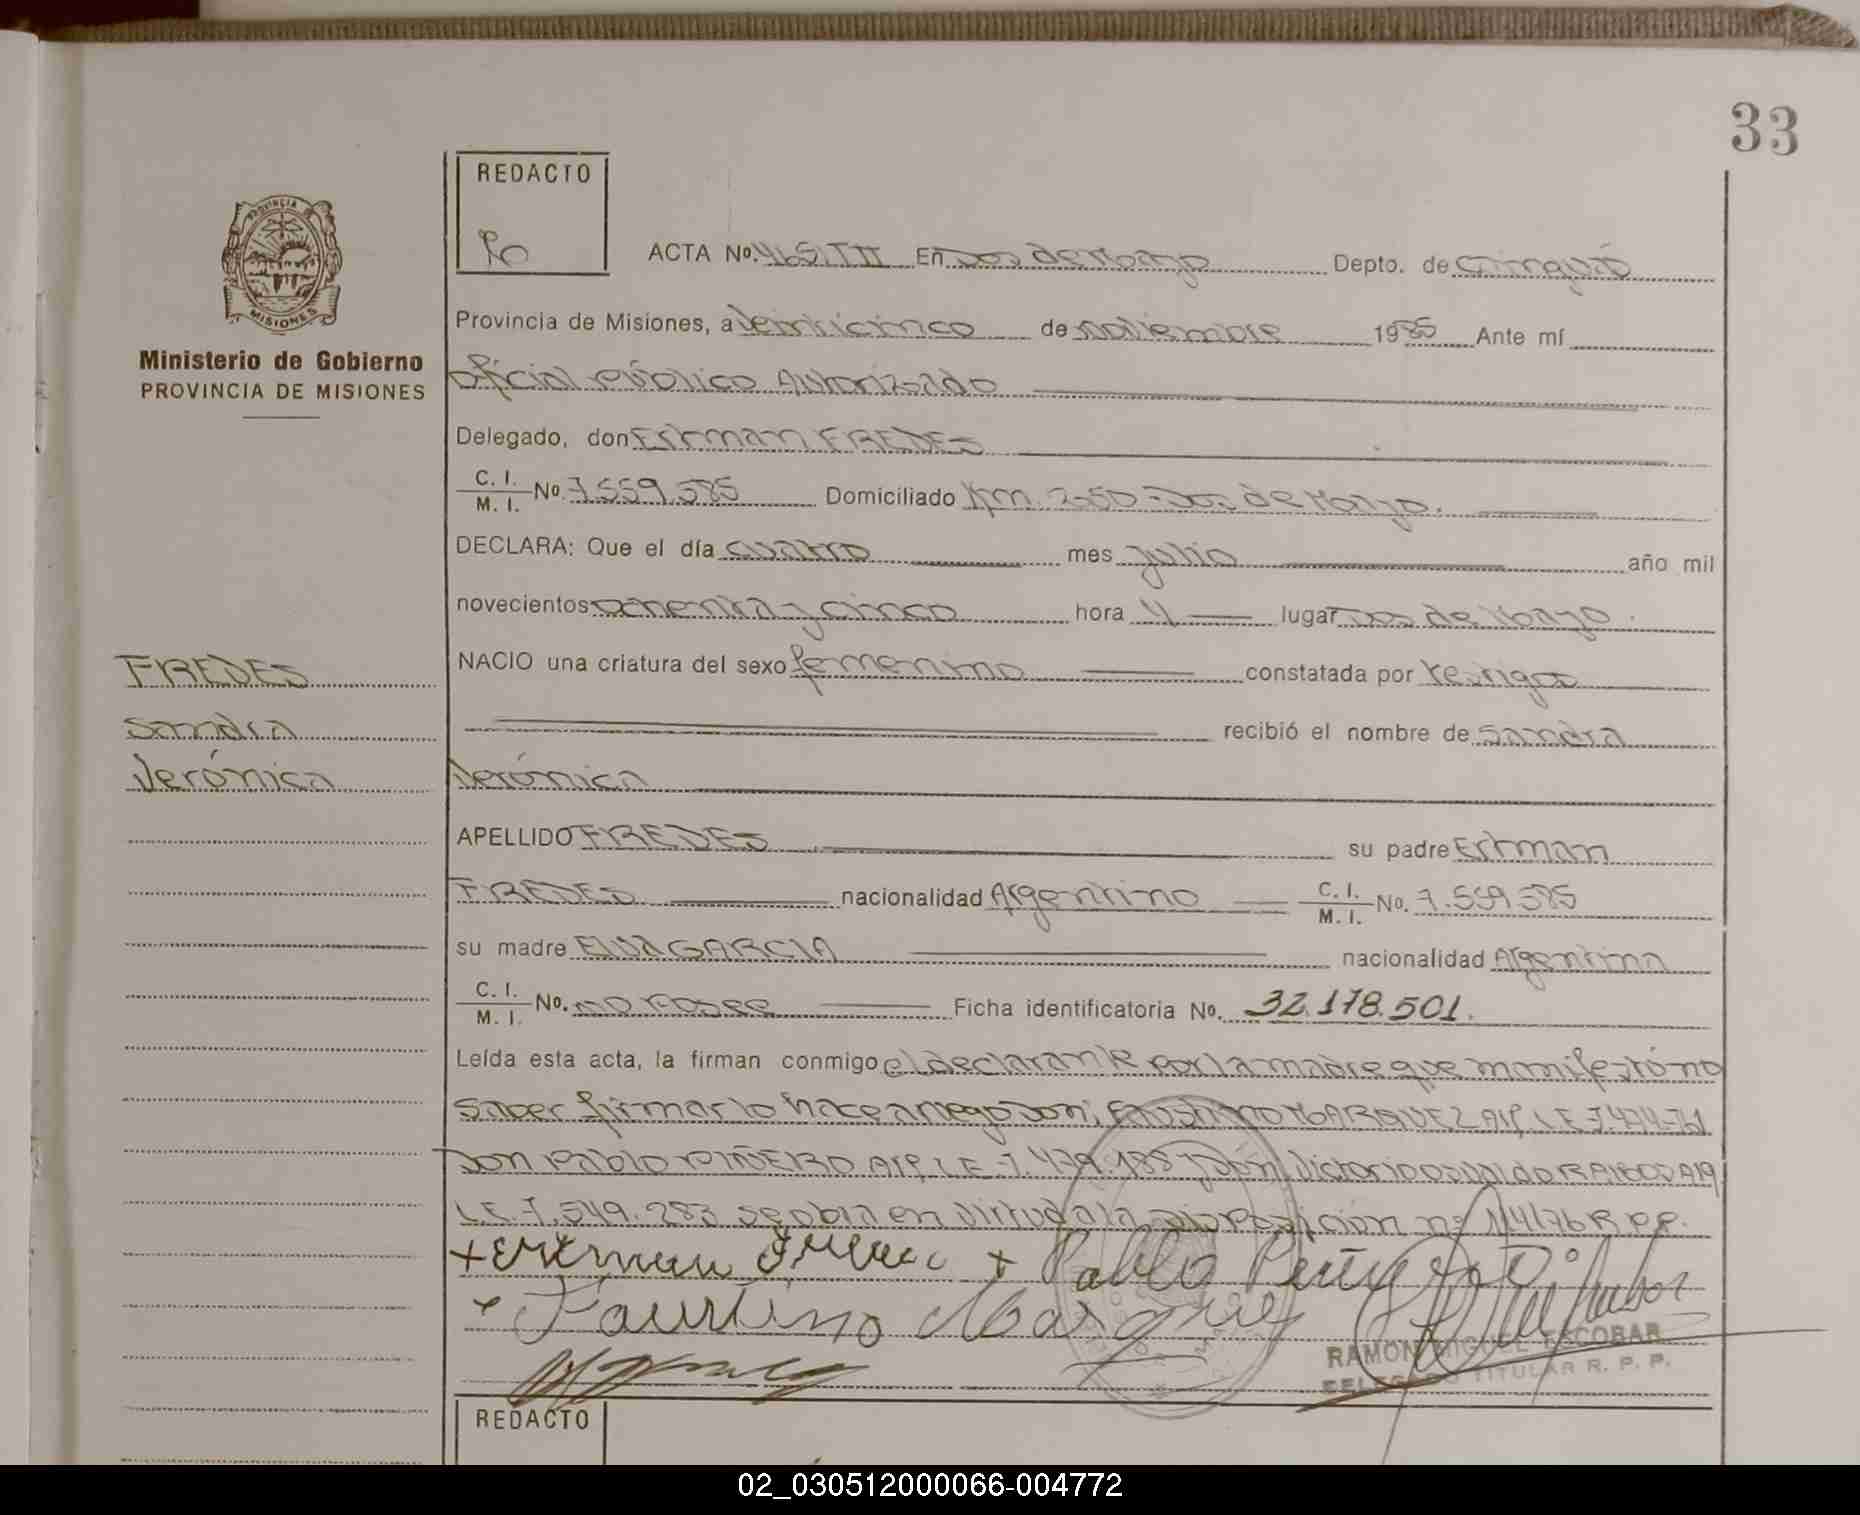 33
REDACTO
ACTA No. 465. T II En Dos de Mayo Depto. de Cainguás
PROVINCIA DE
MISIONES
Ministerio de Gobierno
PROVINCIA DE MISIONES
Provincia de Misiones, a veinticinco de noviembre 1985 Ante mí
Oficial Público Autorizado
Delegado, don Erkman FREDES
C. I. / M. I. No. 7.559.585 Domiciliado Km. 250 - Dos de Mayo.
DECLARA: Que el día cuatro mes julio año mil
novecientos ochenta y cinco hora 4 lugar Dos de Mayo.
NACIO una criatura del sexo femenino constatada por testigos
recibió el nombre de Sandra
Verónica
FREDES
Sandra
Verónica
APELLIDO FREDES su padre Erkman
FREDES nacionalidad Argentino C. I. / M. I. No. 7.559.585
su madre Elva GARCIA nacionalidad Argentina
C. I. / M. I. No. no Posee Ficha identificatoria No. 32.178.501.
Leída esta acta, la firman conmigo el declarante por la madre que manifestó no
saber firmar lo hace a ruego Don; Faustino MARQUEZ Arg. L.E. 7.474.71
Don Pablo PIÑEIRO Arg. L.E. 7.479.188 y Don Victorio Osvaldo RAMOS Arg.
L.E. 7.549.283 se obra en virtud a la Disposición nº 114/76 R.P.P.
+ Erkman Fredes + Pablo Piñeyro
+ Faustino Marquez
RAMON MIGUEL ESCOBAR
DELEGADO TITULAR R. P. P.
REDACTO
02_030512000066-004772